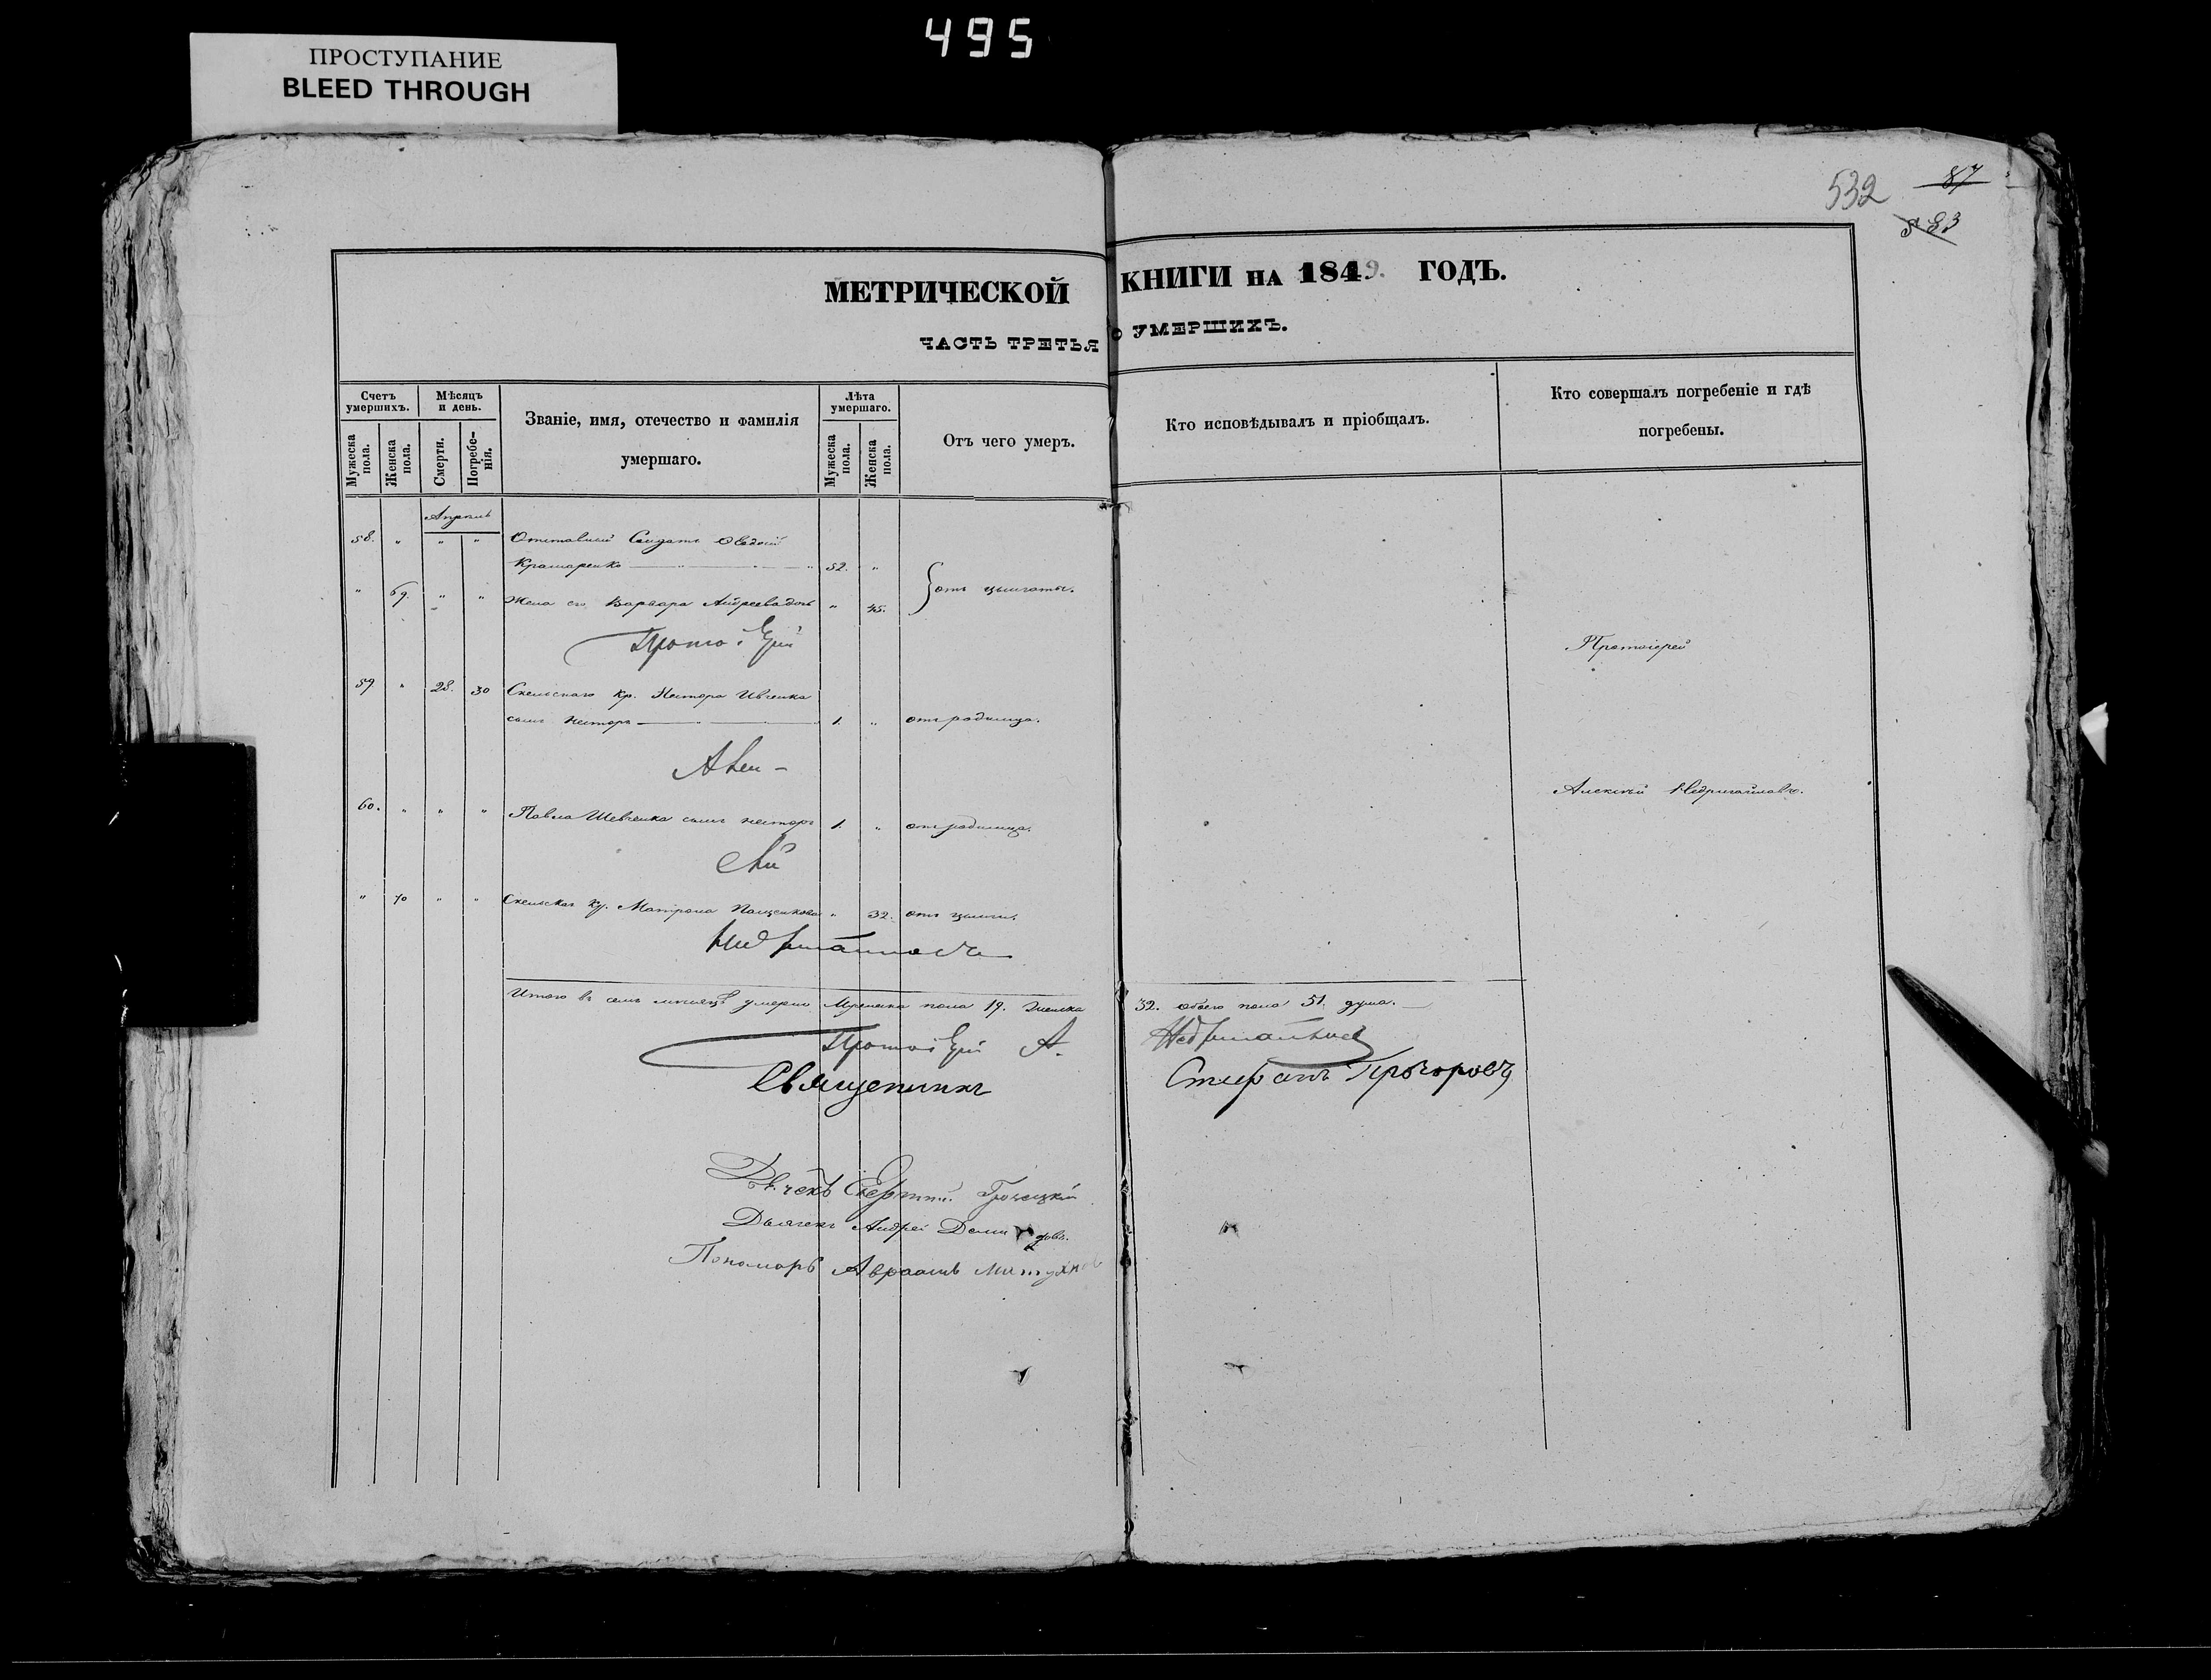 495
ПРОСТУПАНИЕ
BLEED THROUGH
532
87
МЕТРИЧЕСКОЙ КНИГИ НА 1849. ГОДЪ.
ЧАСТЬ ТРЕТЬЯ О УМЕРШИХЪ.
Счетъ умершихъ.
Мужеска пола.
Женска пола.
Мѣсяцъ и день.
Смерти.
Погребенія.
Званіе, имя, отечество и фамилія
умершаго.
Лѣта умершаго.
Мужеска пола.
Женска пола.
Отъ чего умеръ.
Кто исповѣдывалъ и пріобщалъ.
Кто совершалъ погребеніе и гдѣ
погребены.
Апрель
58. " " " Отставной Солдатъ
Крамаренко 52. "
" 69. " " Жена его Варвара Андреева " 45. отъ цынготы.
Прото іерей
Протоіерей
59 " 28. 30 Скельскаго кр. Нестора Ивченка
сынъ Несторъ 1. " отъ родимца.
Алек -
Алексѣй Недригайловъ.
60. " " " Павла Шевченка сынъ Несторъ 1. " отъ родимца.
сѣй
" 70 " " Скельская кр. Матрона " 32. отъ цынги.
Недригайловъ
Итого въ семъ мѣсяцѣ умерло Мужеска пола 19. Женска 32. обоего пола 51. душа.
Протоіерей А. Недригайловъ
Священникъ Стефанъ Прохоровъ
Дьячекъ Андрей
Пономарь Авраамъ